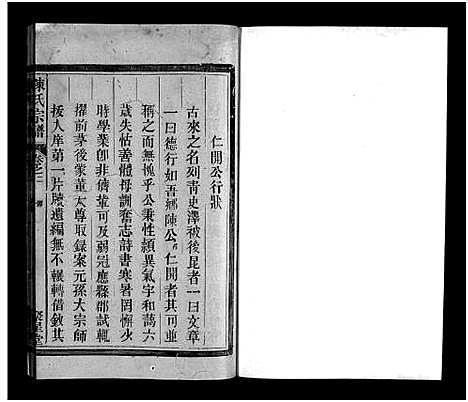 仁開公行狀
古來之名列青史澤被後昆者一曰文章
一曰德行如吾鄉陳公仁開者其可並
稱之而無愧乎公秉性頴異氣宇和藹六
歲失怙善體母訓奮志詩書寒暑罔懈少
時學業卽非儕輩可及弱冠應縣郡試輒
擢前茅後蒙董太尊取録案元孫大宗師
拔入庠第一片牘遺編無不輾轉借敘其
陳氏宗譜
卷之二